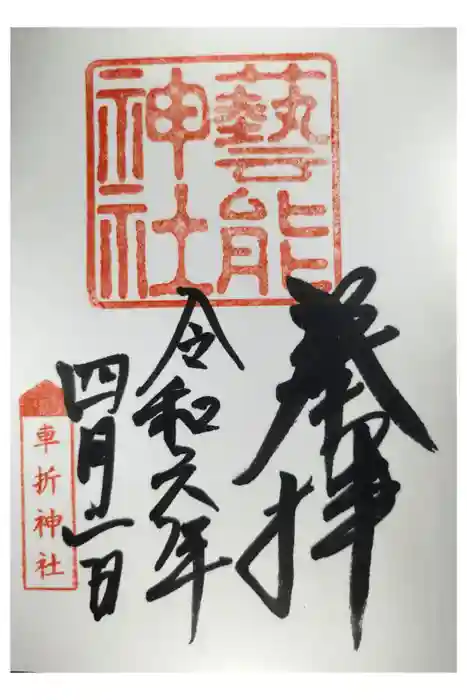 藝能
神社
奉拝
令和元年
四月一日
車折神社